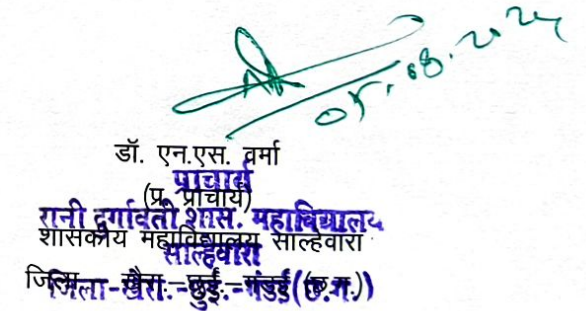 05.08.2025
डॉ. एन.एस. वर्मा
प्राचार्य
(प्र. प्राचार्य)
रानी दुर्गावती शास. महाविद्यालय
शासकीय महाविद्यालय साल्हेवारा
साल्हेवारा
जिला – खैरा.–छुई.–गंडई (छ.ग.)
जिला-खैरा.-छुई.-गंडई(छ.ग.)